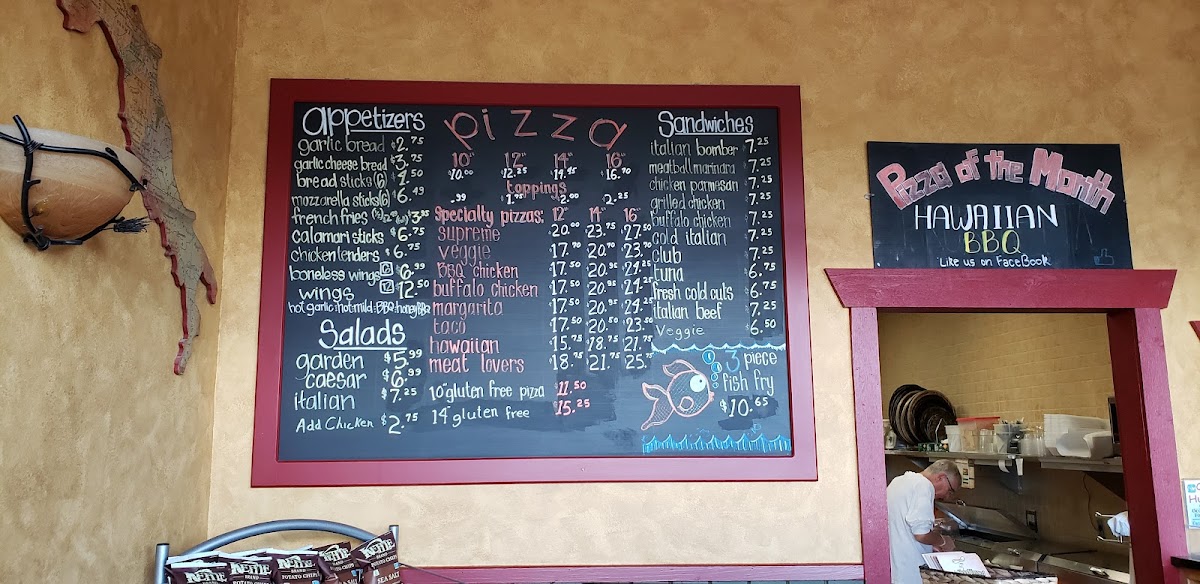 appetizers
garlic bread $2.75
garlic cheese bread $3.75
bread sticks (6) $4.50
mozzarella sticks (6) $6.49
french fries $3.95
calamari sticks $6.75
chicken tenders $6.75
boneless wings 6 $6.99
wings 12 $12.50
hot garlic:hot:mild:BBQ:honey BBQ
Salads
garden $5.99
caesar $6.99
italian $7.25
Add Chicken $2.75
pizza
10" 12" 14" 16"
$10.00 $12.25 $14.45 $16.70
toppings
.99 $1.75 2.00 2.25
Specialty pizzas: 12" 14" 16"
supreme 20.00 23.75 27.50
veggie 17.90 20.90 23.90
BBQ chicken 17.50 20.95 24.25
buffalo chicken 17.50 20.95 24.25
margarita 17.50 20.95 24.25
taco 17.50 20.50 23.50
hawaiian 15.75 18.75 21.75
meat lovers 18.75 21.75 25.75
10" gluten free pizza $11.50
14" gluten free $15.25
Sandwiches
italian bomber $7.25
meatball marinara $7.25
chicken parmesan $7.25
grilled chicken $7.25
buffalo chicken $7.25
cold italian $7.25
club $7.25
tuna $6.75
fresh cold cuts $6.75
italian beef $7.25
Veggie $6.50
3 piece
fish fry
$10.65
Pizza of the Month
HAWAIIAN
BBQ
Like us on FaceBook
KETTLE
BRAND
POTATO CHIPS
SEA SALT